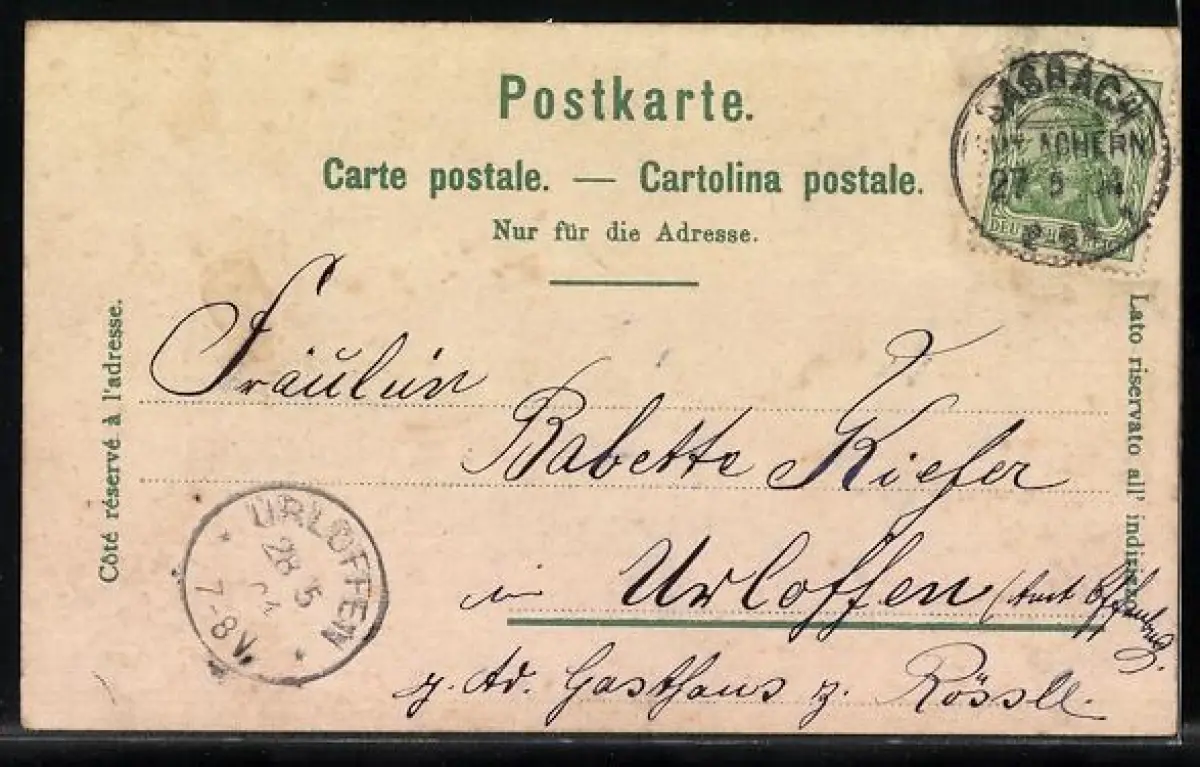 Postkarte.
Carte postale. — Cartolina postale.
Nur für die Adresse.
SASBACH
ACHERN
27 5 04
DEUTSCHES REICH
Côté réservé à l'adresse.
Lato riservato all' indirizzo.
Fräulein
Babette Kiefer
in Urloffen (Amt Offenburg).
z. Ad. Gasthaus z. Rössle.
URLOFFEN
28 5
04
7-8V